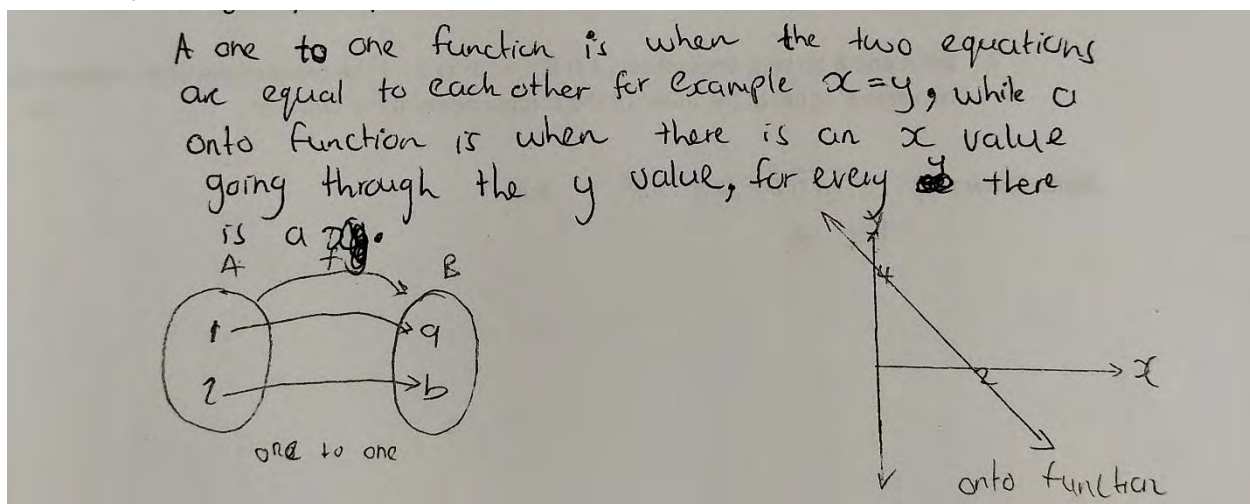 A one to one function is when the two equations
are equal to each other for example x=y, while a
onto function is when there is an x value
going through the y value, for every y there
is a x.
A f B
1 a
2 b
one to one
y
4
2 x
onto function